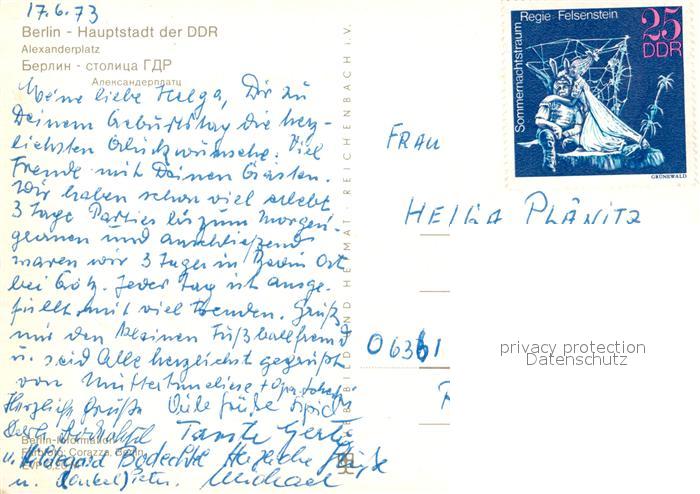 17.6.73
Berlin - Hauptstadt der DDR
Alexanderplatz
Берлин - столица ГДР
Александерплатц
Meine liebe Helga, Dir zu
Deinem Geburtstag die herz-
lichsten Glückwünsche. Viel
Freude mit Deinen Gästen.
Wir haben schon viel erlebt
3 Tage Parties bis zum Morgen-
grauen und anschließend
waren wir 3 Tage in Berlin Ost
bei Götz. Jeder Tag ist ausge-
füllt mit viel Freuden. Grüß
mir den kleinen Fußballfreund
u. seid Alle herzlichst gegrüßt
von Mutter + Opa
Herzliche Grüße Viele Grüße
Tante
Berlin-Information
u. Hildegard Herzliche Grüße
Farbfoto: Corazza, Berlin
u. Onkel Peter. Michael
BILD UND HEIMAT · REICHENBACH i. V.
Sommernachtstraum Regie · Felsenstein
25
DDR
GRÜNEWALD
FRAU
HELGA PLÄNITZ
privacy protection
Datenschutz